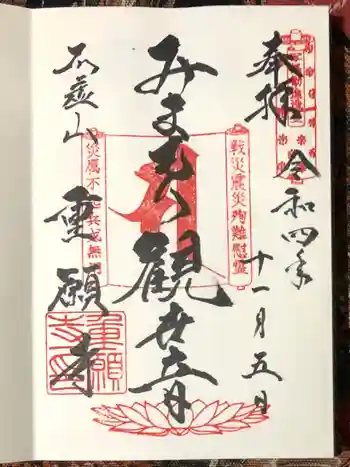 奉拝
令和四年
十一月五日
戦災震災殉難慰霊
みまもり觀世音
災厲不起兵戈無用
不虚山
重願寺
重願寺印